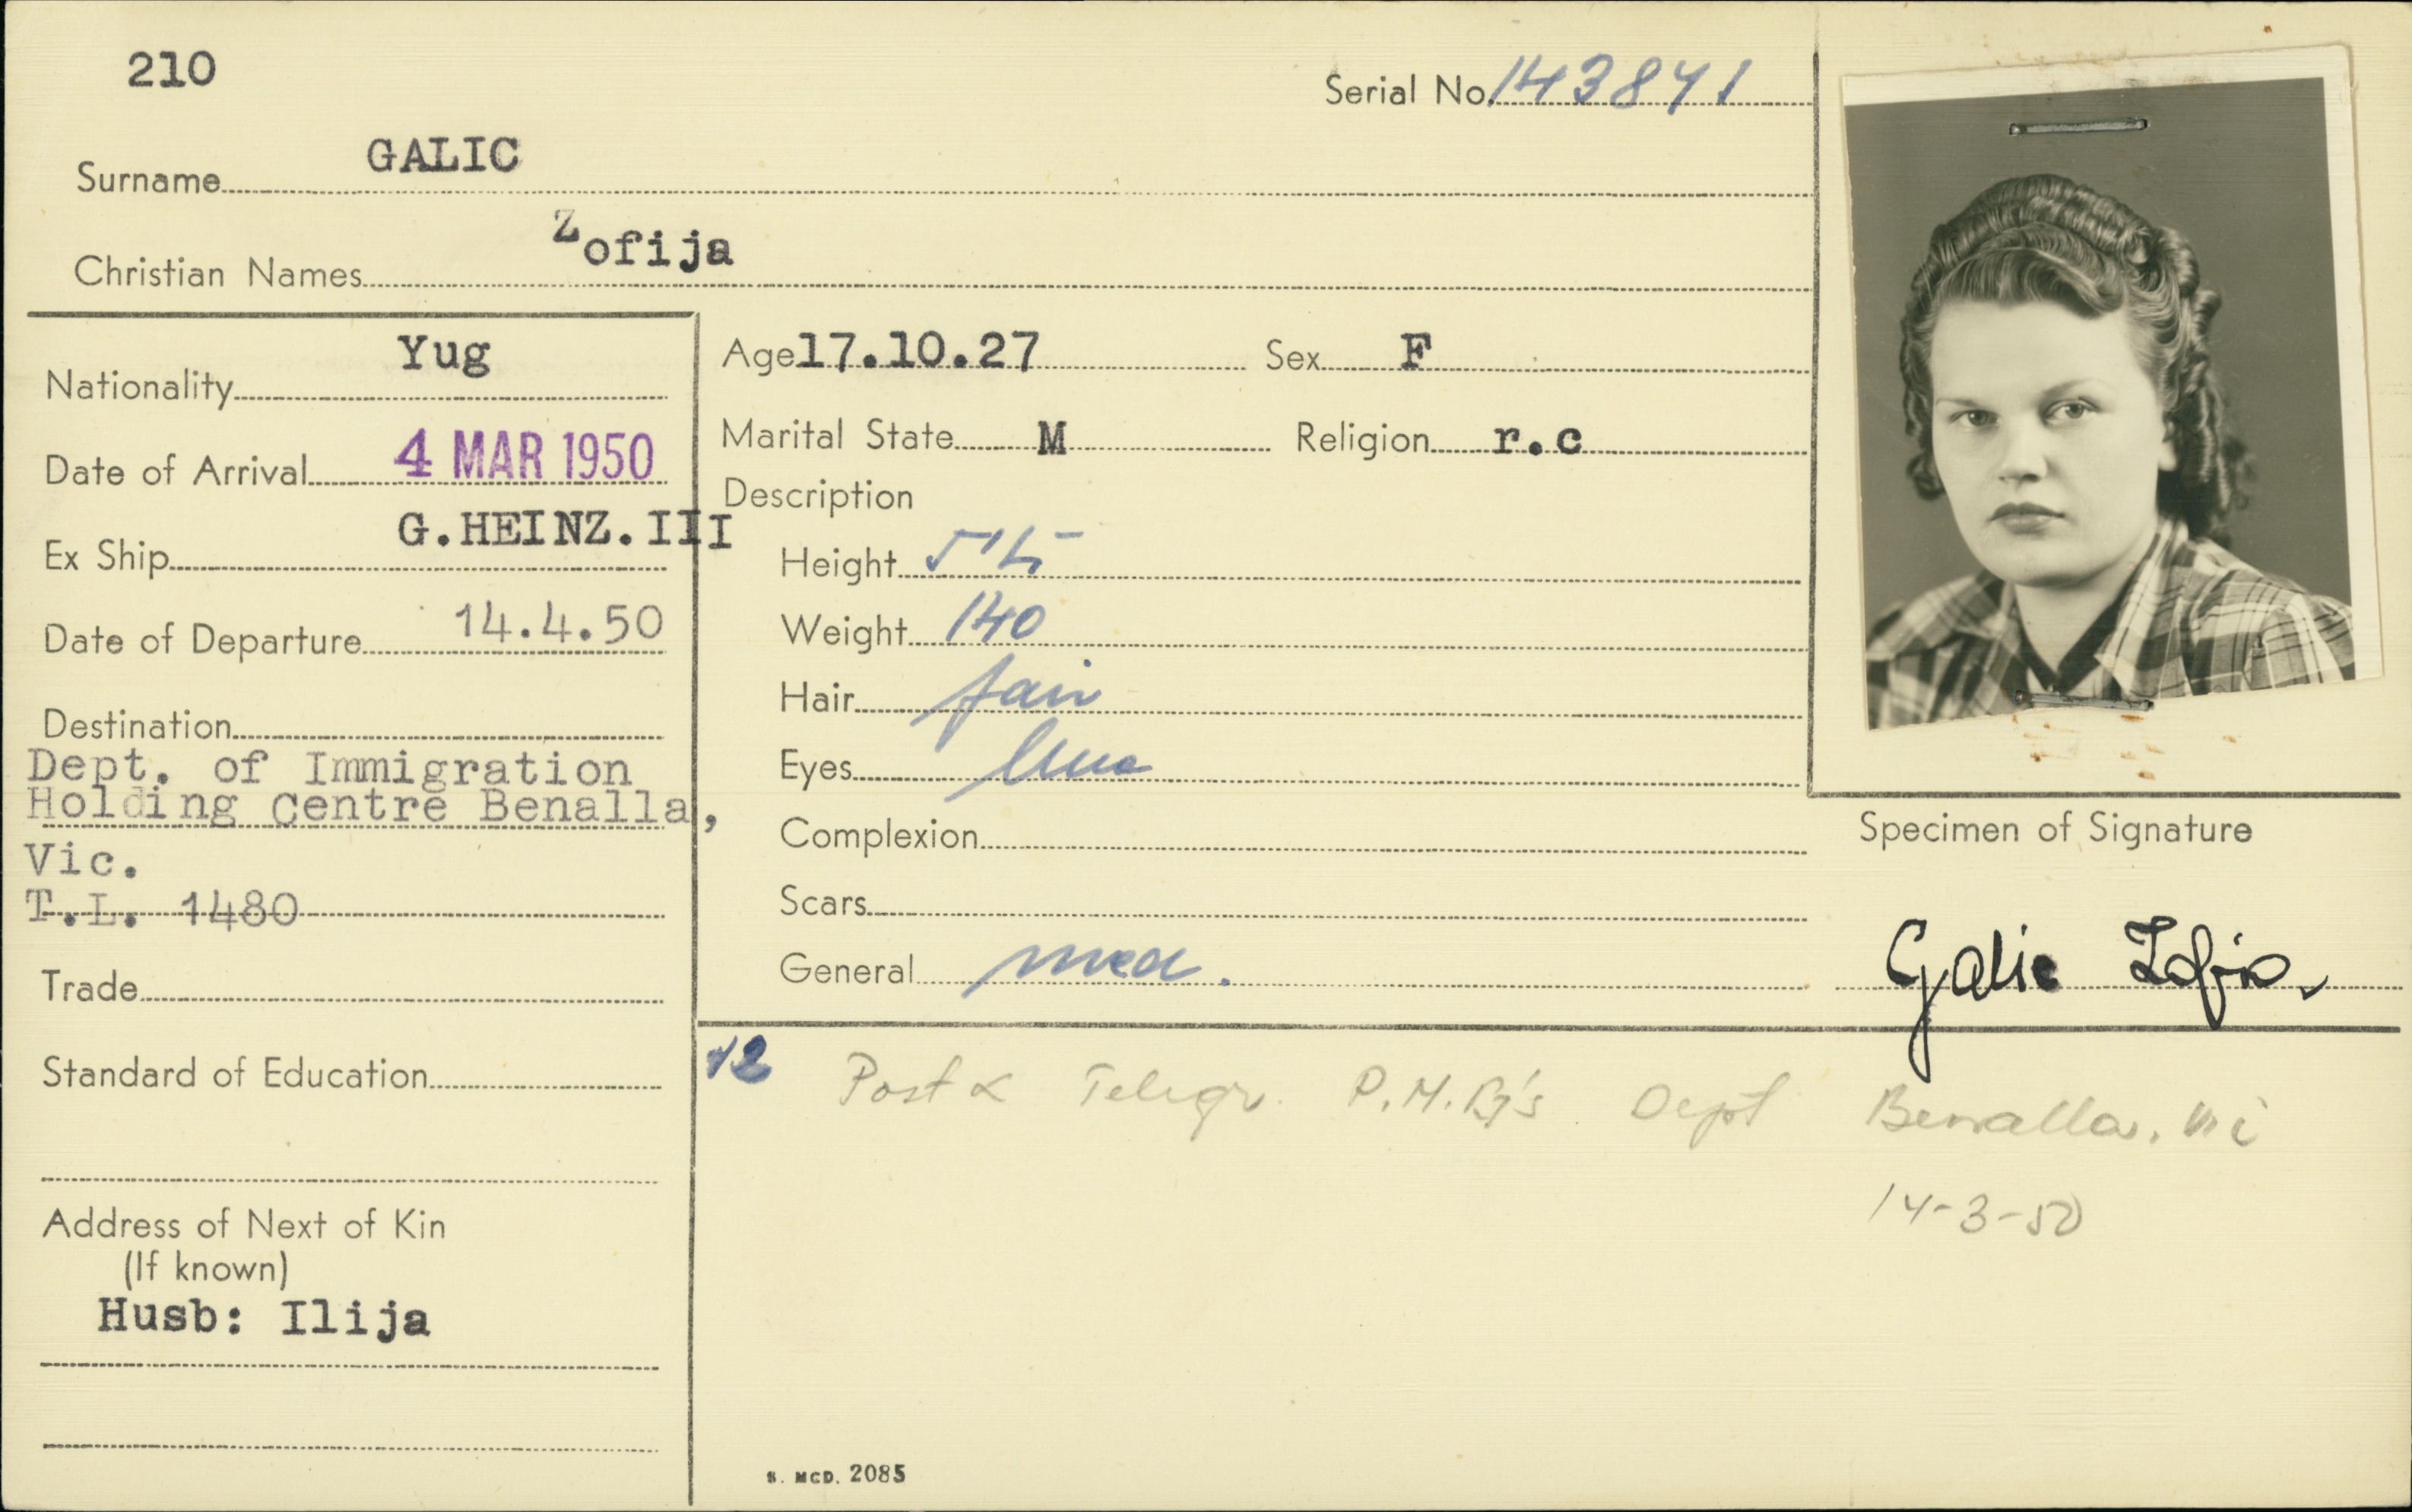 210
Serial No. 143841
Surname GALIC
Christian Names Zofija
Nationality Yug
Date of Arrival 4 MAR 1950
Ex Ship G.HEINZ.III
Date of Departure 14.4.50
Destination
Dept. of Immigration
Holding Centre Benalla,
Vic.
T.L. 1480
Trade
Standard of Education
Address of Next of Kin
(If known)
Husb: Ilija
Age 17.10.27 Sex F
Marital State M Religion r.c
Description
Height 5'5
Weight 140
Hair fair
Eyes blue
Complexion
Scars
General med.
Specimen of Signature
Galic Zofia.
12 Post & Telegr. P.M.G's Dept Benalla, Vic
14-3-50
S. MCD. 2085